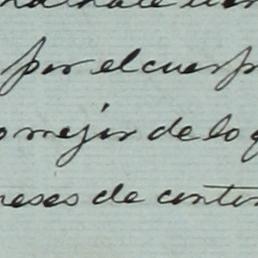 por el cuerp
mejor de lo q
reses de conten